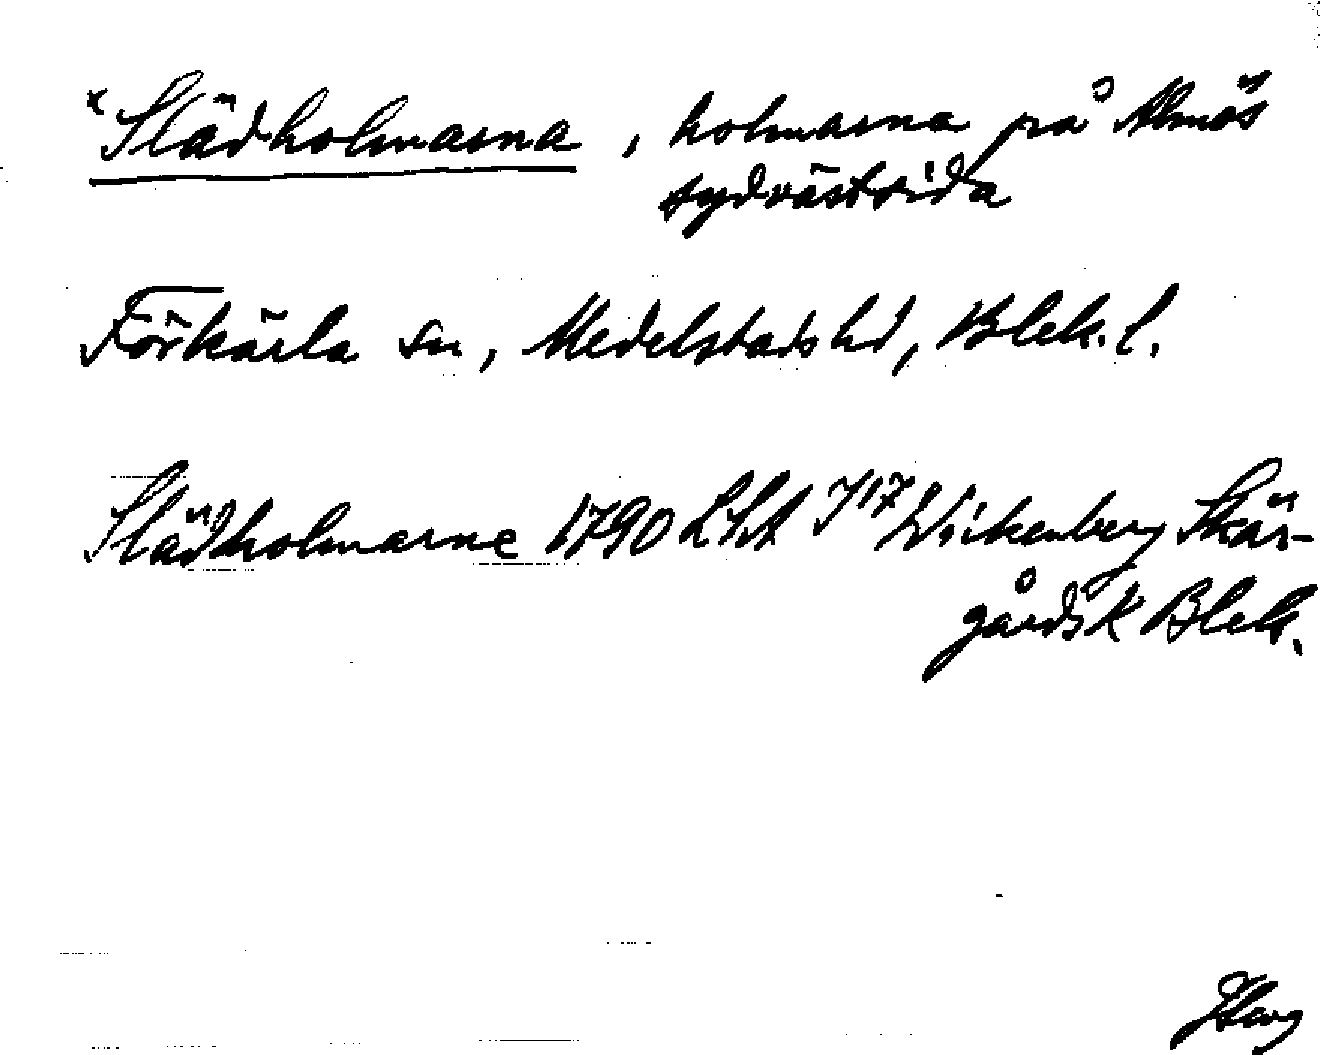 x Slädholmarna, holmarna på Almös
sydvästsida
Förkärla sn, Medelstads hd, Blek. l.
Slädholmarne 1790 LSA J17 Wickenberg Skär-
gårdsk Blek.